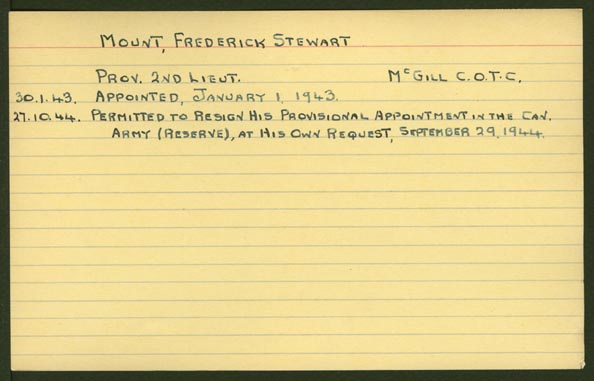 MOUNT, FREDERICK STEWART
PROV. 2ND LIEUT. McGILL C.O.T.C.
30.1.43. APPOINTED, JANUARY 1, 1943.
27.10.44. PERMITTED TO RESIGN HIS PROVISIONAL APPOINTMENT IN THE CAN.
ARMY (RESERVE), AT HIS OWN REQUEST, SEPTEMBER 29, 1944.